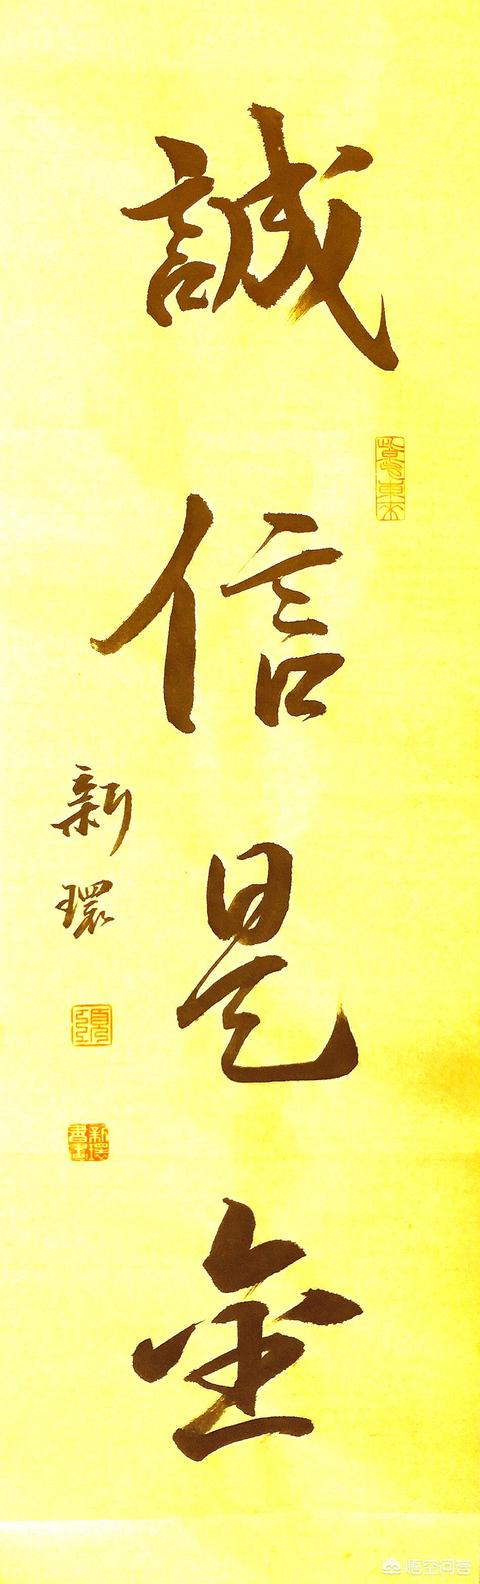 誠信是金
新環
悟空问答